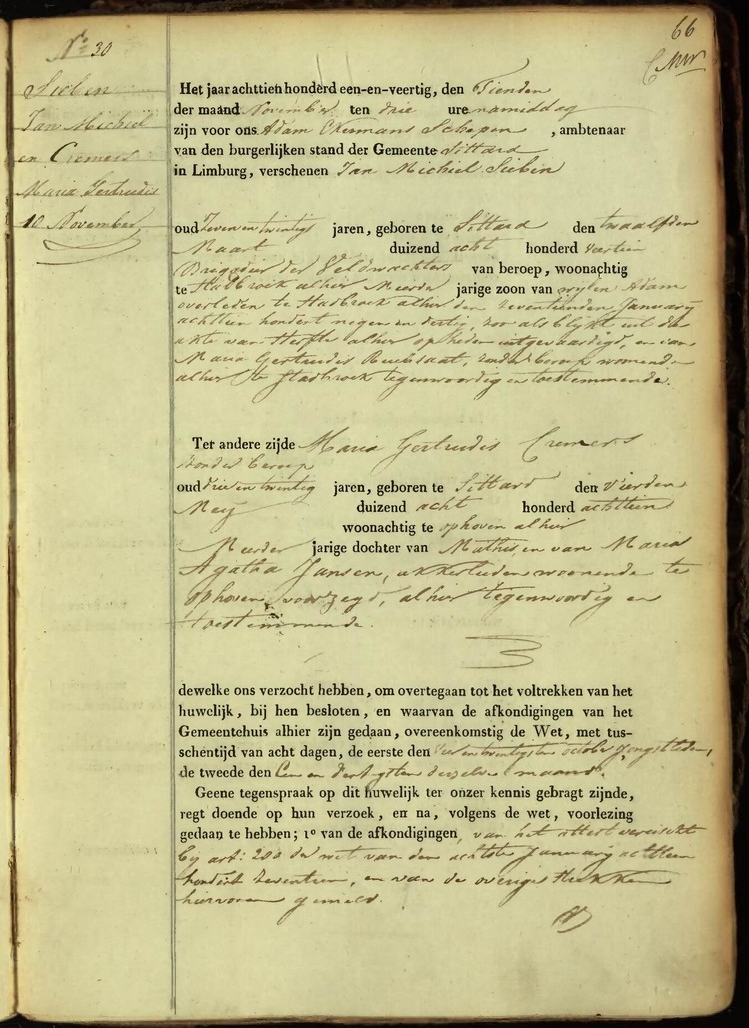 66
N° 30
Sieben
Jan Michiel
en Cremers
Maria Gertrudis
10 November
Het jaar achttien honderd een-en-veertig, den Tienden
der maand November ten drie ure namiddag
zijn voor ons Adam Schepen , ambtenaar
van den burgerlijken stand der Gemeente Sittard
in Limburg, verschenen Jan Michiel Sieben
oud Zeven en twintig jaren, geboren te Sittard den twaalfden
Maart duizend acht honderd veertien
Brigadier der Veldwachters van beroep, woonachtig
te Stadbroek alhier Meerder jarige zoon van wijlen Adam
overleden te Stadbroek alhier den zeventienden January
achttien hondert negen en dertig, zoo als blijkt uit de
akte van sterfte alhier op heden uitgevaardigd, en van
Maria Gertrudis zonder beroep wonende
alhier te Stadbroek tegenwoordig en toestemmende.
Ter andere zijde Maria Gertrudis Cremers
zonder beroep
oud drie en twintig jaren, geboren te Sittard den vierden
Meij duizend acht honderd achttien
woonachtig te ophoven alhier
Meerder jarige dochter van Mathis, en van Maria
Agatha Jansen, akkerlieden woonende te
ophoven voorzegd, alhier tegenwoordig en
toestemmende.
dewelke ons verzocht hebben, om overtegaan tot het voltrekken van het
huwelijk, bij hen besloten, en waarvan de afkondigingen van het
Gemeentehuis alhier zijn gedaan, overeenkomstig de Wet, met tus-
schentijd van acht dagen, de eerste den vier en twintigsten october jongstleden,
de tweede den Een en dertigsten derzelve maand.
Geene tegenspraak op dit huwelijk ter onzer kennis gebragt zijnde,
regt doende op hun verzoek, en na, volgens de wet, voorlezing
gedaan te hebben; 1° van de afkondigingen, van het attest vereischt
bij art: 200 der wet van den achtste January achttien
hondert zeventien, en van de overige stukken
hiervoren gemeld.